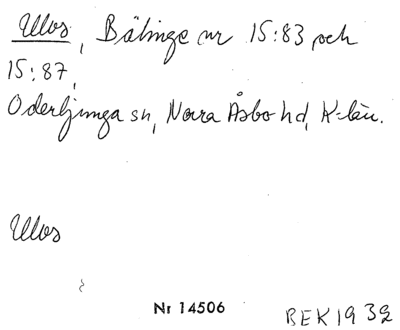 Ulvs, Bälinge nr 15:83 och
15:87,
Oderljunga sn, Norra Åsbo hd, K-län.
Ulvs
Nr 14506
BEK 1932